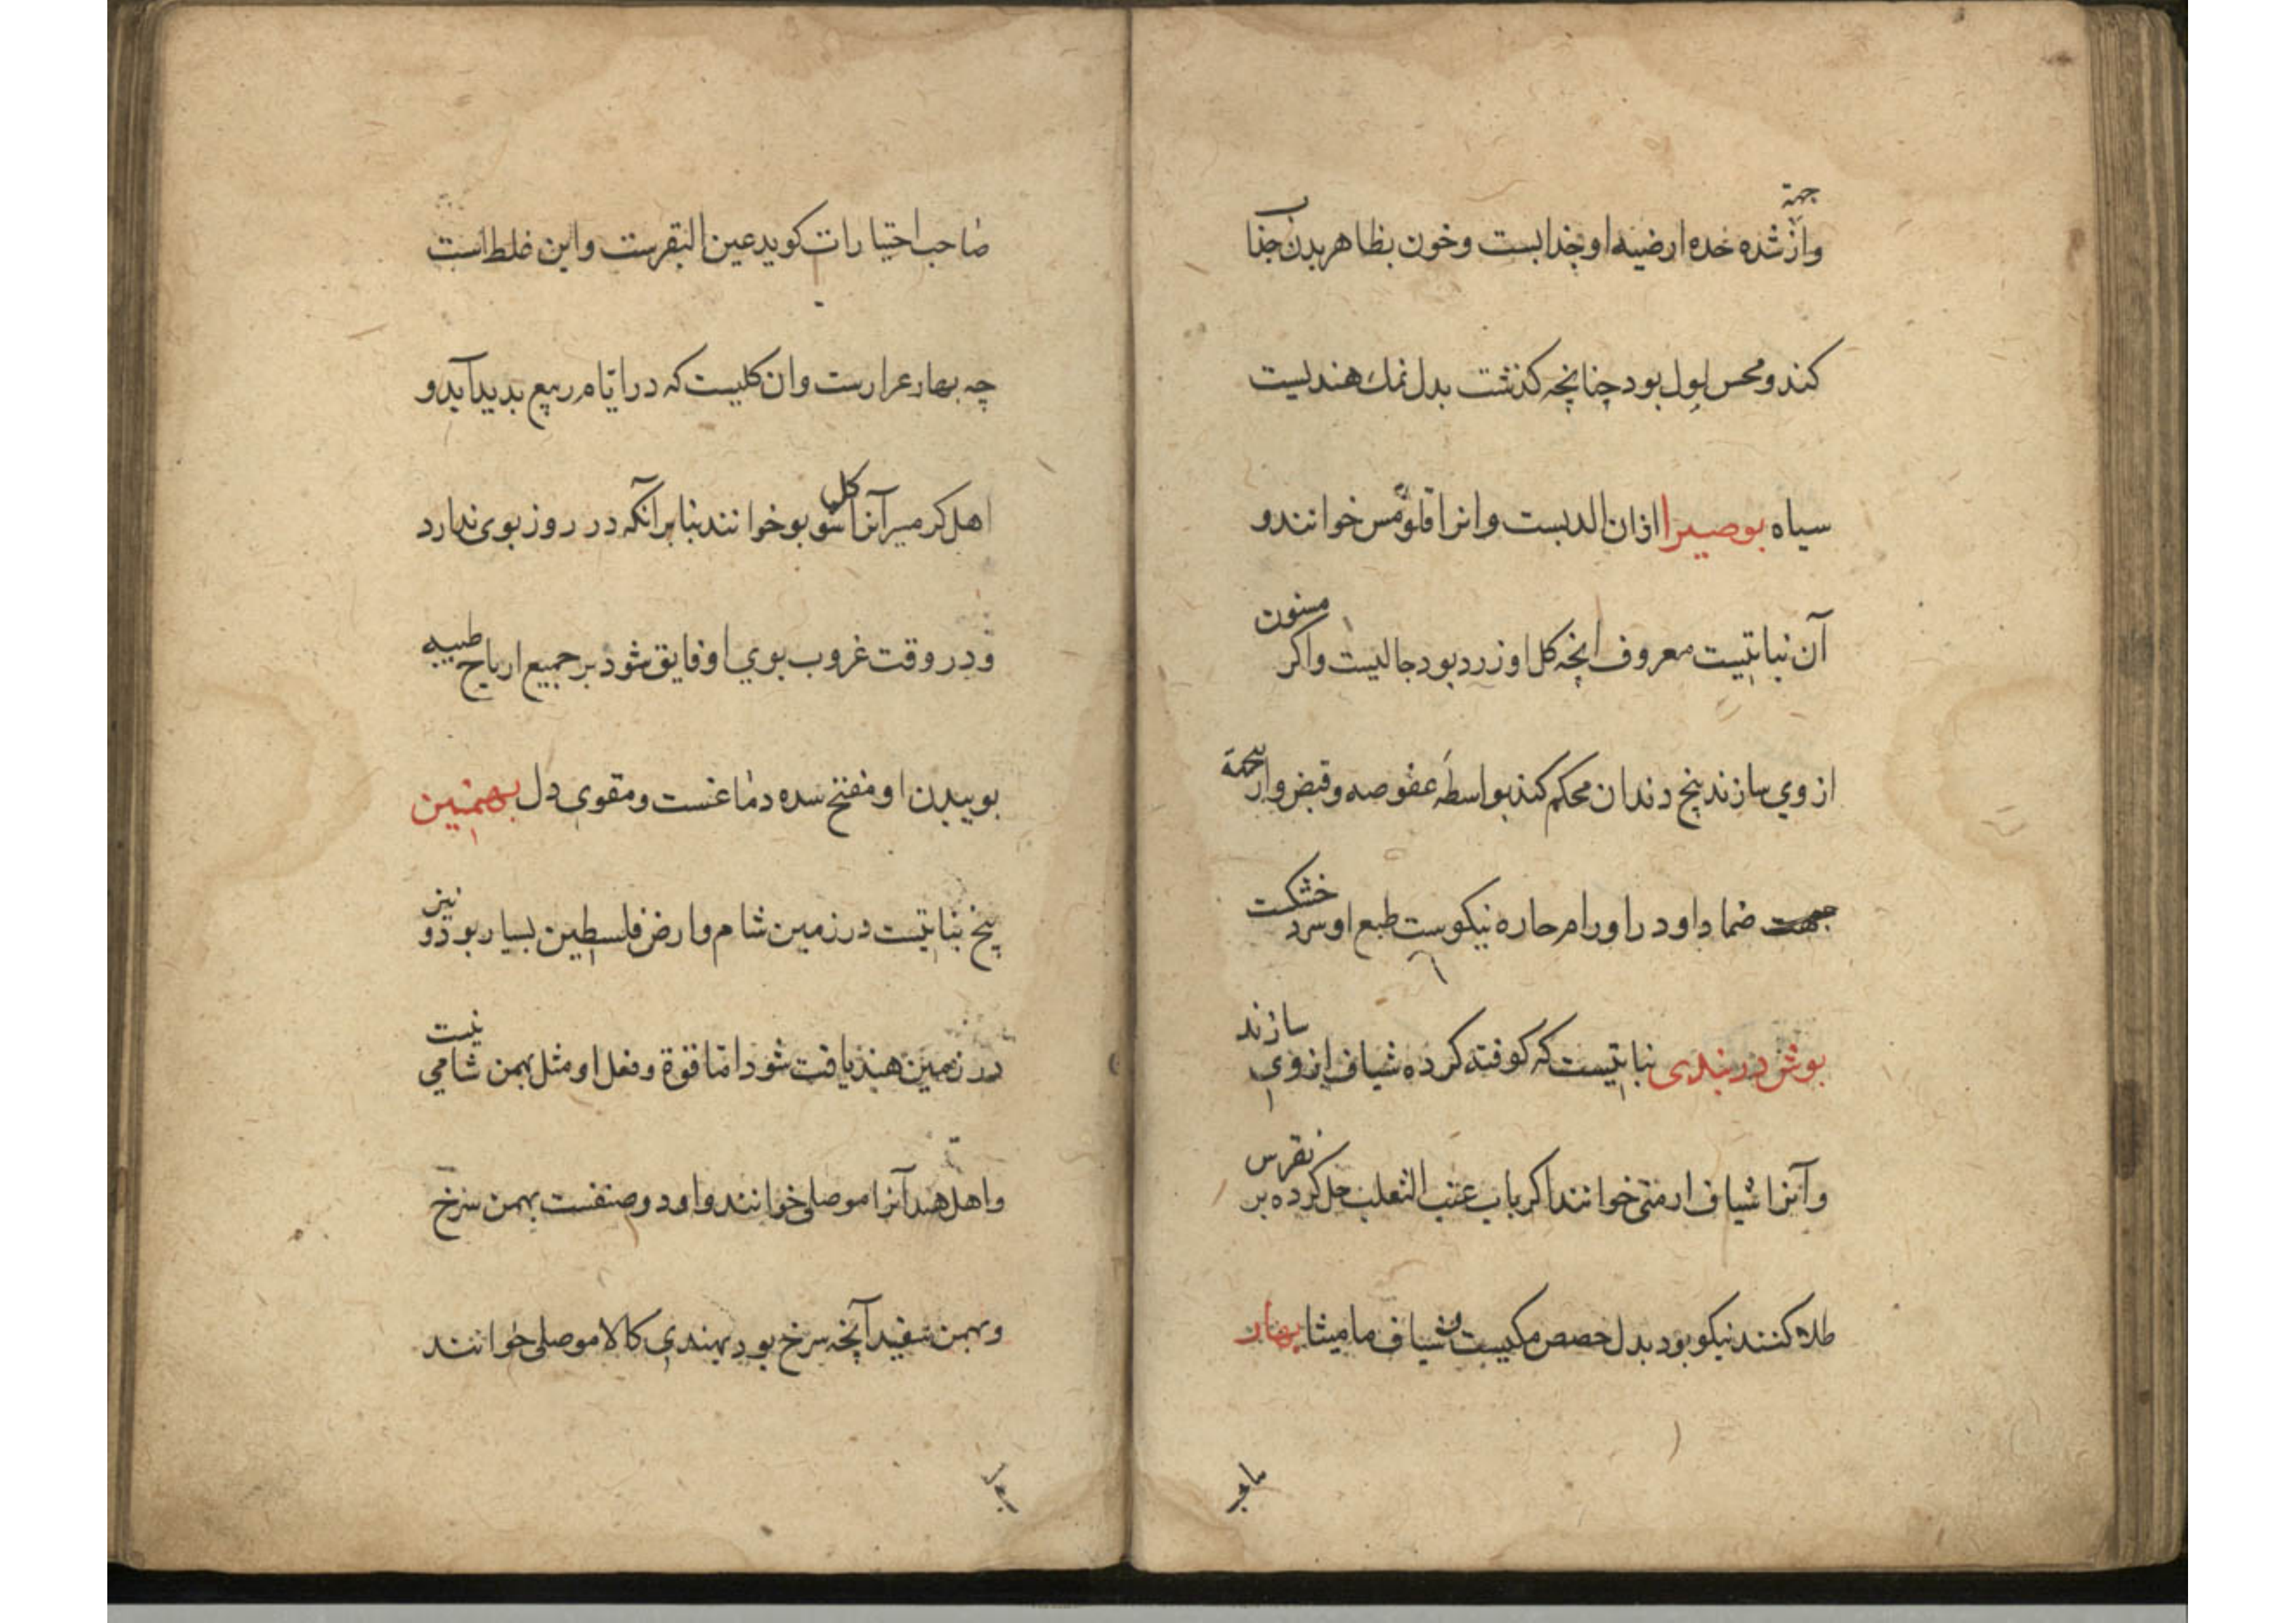 جهة
واز شده خده ارضیه او جذابست و خون بظاهر بدن جذب
کند و محس بول بود چنانچه کذشت بدل نمك هندیست
سیاه بوصیرا اذان الدبست وانرا قلومس خوانند و
آن نباتیست معروف انچه کل او زرد بود جالیست واکر مسنون
از وی سازند بیخ دندان محکم کند بواسطه عفوصه و قبض و از جهة
ضماد اود را اورام حاره نیکوست طبع او سرد خشکست
بوش دربندی نباتیست که کوفته کرده شیاف از وی سازند
وآنرا شیاف ارمنی خوانند اکر باب عنب الثعلب حل کرده بر نقرس
طلاء کنند نیکو بود بدل حصص مکیست و شیاف مامیثا بهار
صاحب اختیارات کوید عین البقرست واین غلط است
چه بهار عرارست وان کلیست که در ایام ربیع بدید آید و
اهل کرمسیر آنرا کل شو بو خوانند بنا بر آنکه در روز بوی ندارد
ودر وقت غروب بوی او فایق شود بر جمیع اریاح طیبه
بوییدن او مفتح سده دماغست و مقوی دل بهمنین
بیخ نباتیست در زمین شام وارض فلسطین بسیار بود و نیز
در زمین هند یافت شود اما قوة و فعل او مثل بهمن شامی نیست
واهل هند آنرا موصلی خوانند واو دو صنفست بهمن سرخ
وبهمن سفید آنچه سرخ بود بهندی کالا موصلی خوانند